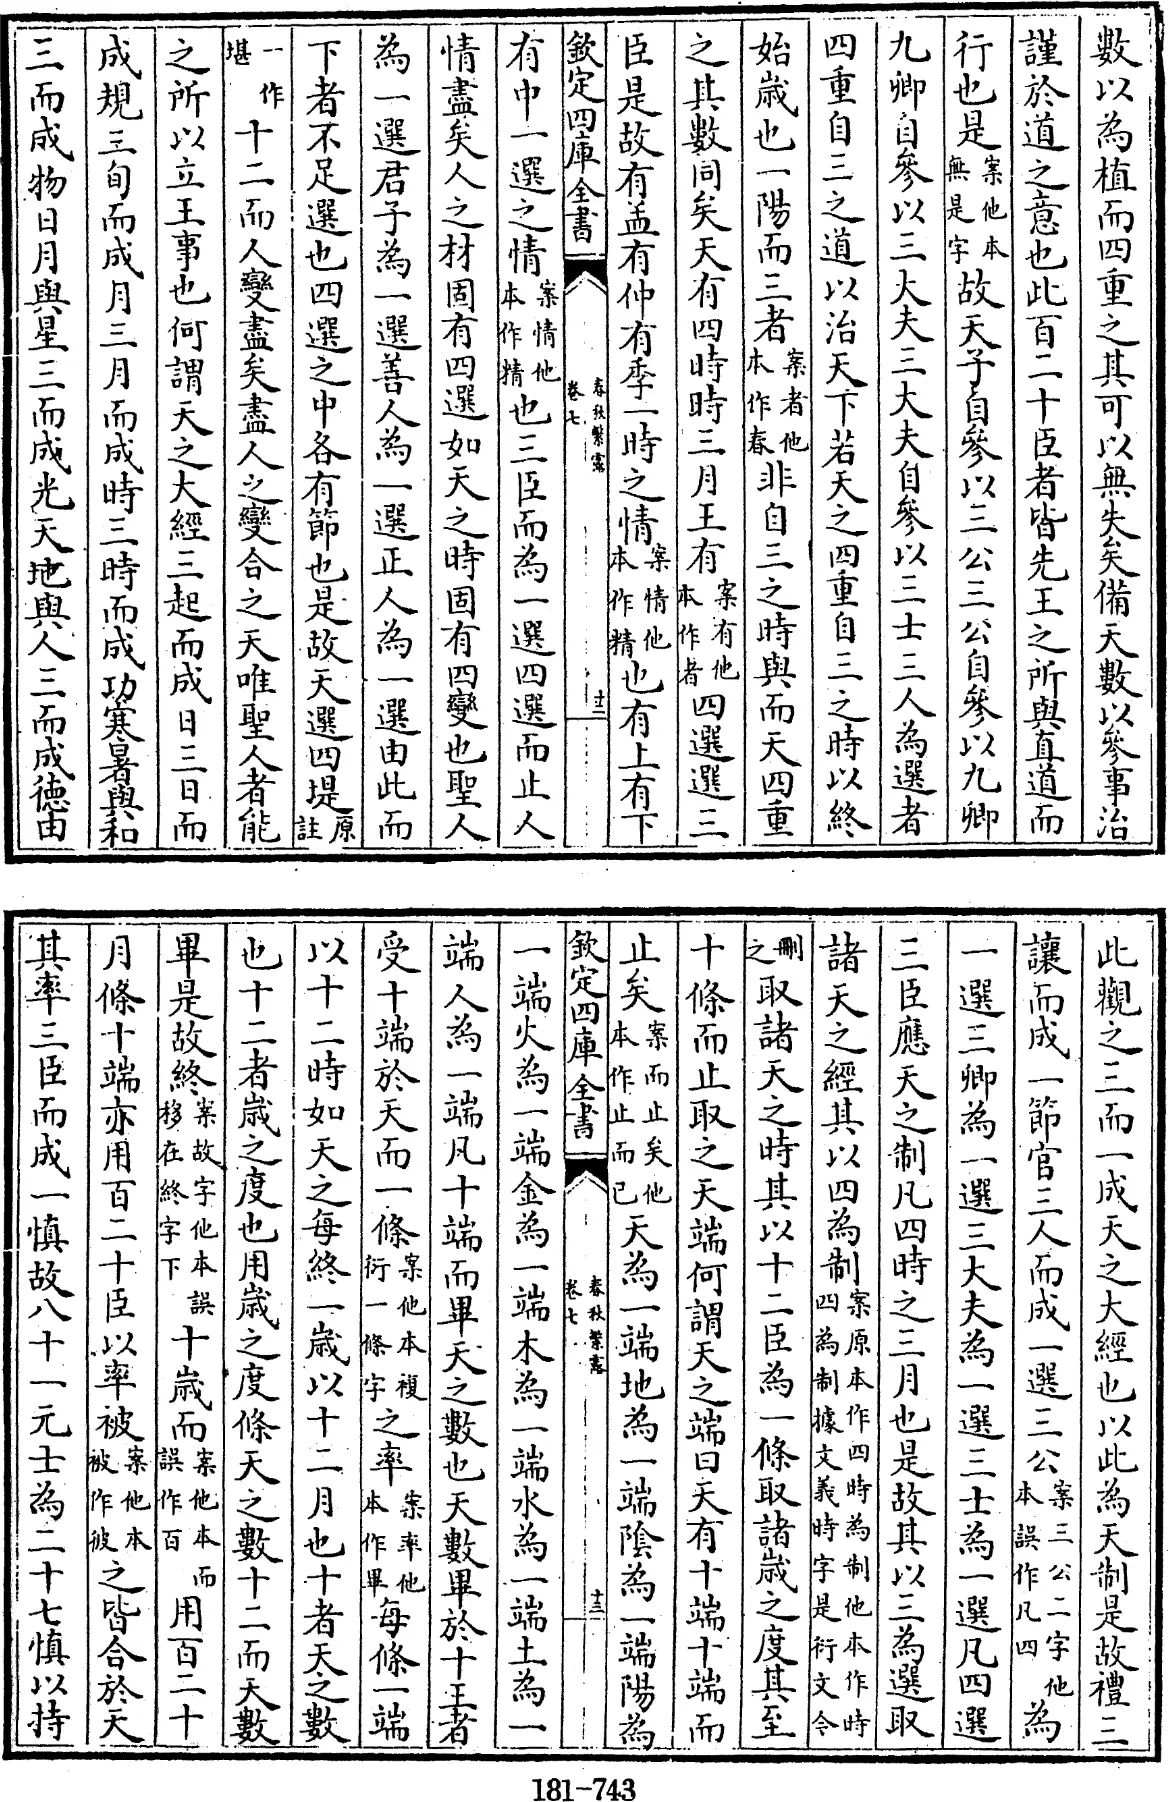 數以為植而四重之其可以無失矣備天數以參事治
謹於道之意也此百二十臣者皆先王之所與直道而
行也是案他本無是字故天子自參以三公三公自參以九卿
九卿自參以三大夫三大夫自參以三士三人為選者
四重自三之道以治天下若天之四重自三之時以終
始歲也一陽而三者案者他本作春非自三之時與而天四重
之其數同矣天有四時時三月王有案有他本作者四選選三
臣是故有孟有仲有季一時之情案情他本作精也有上有下
欽定四庫全書
春秋繁露
卷七
十二
有中一選之情案情他本作精也三臣而為一選四選而止人
情盡矣人之材固有四選如天之時固有四變也聖人
為一選君子為一選善人為一選正人為一選由此而
下者不足選也四選之中各有節也是故天選四堤原註
一作堪十二而人變盡矣盡人之變合之天唯聖人者能
之所以立王事也何謂天之大經三起而成日三日而
成規三旬而成月三月而成時三時而成功寒暑與和
三而成物日月與星三而成光天地與人三而成德由
此觀之三而一成天之大經也以此為天制是故禮三
讓而成一節官三人而成一選三公案三公二字他本誤作凡四為
一選三卿為一選三大夫為一選三士為一選凡四選
三臣應天之制凡四時之三月也是故其以三為選取
諸天之經其以四為制案原本作四時為制他本作時四為制據文義時字是衍文今
刪之取諸天之時其以十二臣為一條取諸歲之度其至
十條而止取之天端何謂天之端曰天有十端十端而
止矣案而止矣他本作止而已天為一端地為一端陰為一端陽為
欽定四庫全書
春秋繁露
卷七
十三
一端火為一端金為一端木為一端水為一端土為一
端人為一端凡十端而畢天之數也天數畢於十王者
受十端於天而一條案他本複衍一條字之率案率他本作畢每條一端
以十二時如天之每終一歲以十二月也十者天之數
也十二者歲之度也用歲之度條天之數十二而天數
畢是故終案故字他本誤移在終字下十歲而案他本而誤作百用百二十
月條十端亦用百二十臣以率被案他本被作彼之皆合於天
其率三臣而成一慎故八十一元士為二十七慎以持
181-743